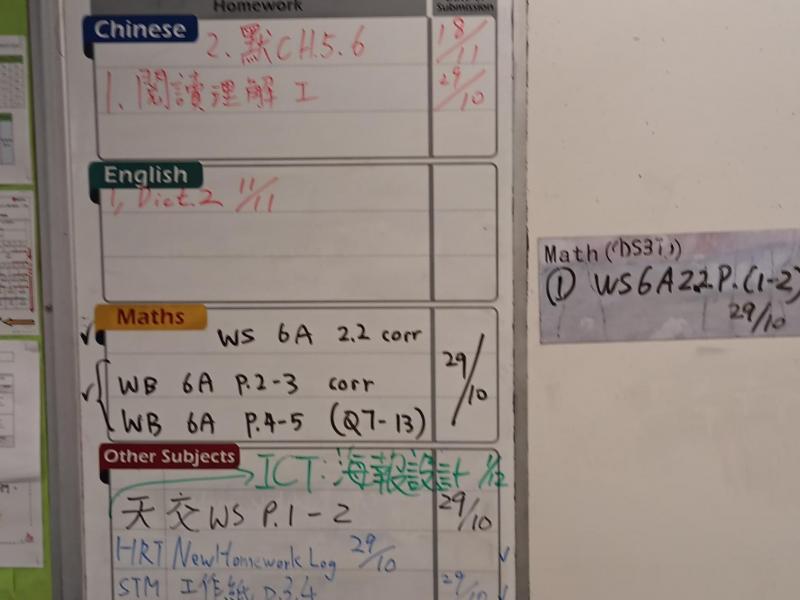 Homework
Submission
Chinese
2. 默CH.5.6
18/11
1. 閱讀理解 I
29/10
English
1, Dict.2 11/11
Maths
WS 6A 2.2 corr
WB 6A P.2-3 corr
29/10
WB 6A P.4-5 (Q7-13)
Other Subjects
ICT: 海報設計 1/12
天交WS P.1-2
29/10
HRT New Homework Log 29/10
STM 工作紙 p.3,4
29/10
Math (DS3i)
① WS6A2.2 P.(1-2)
29/10